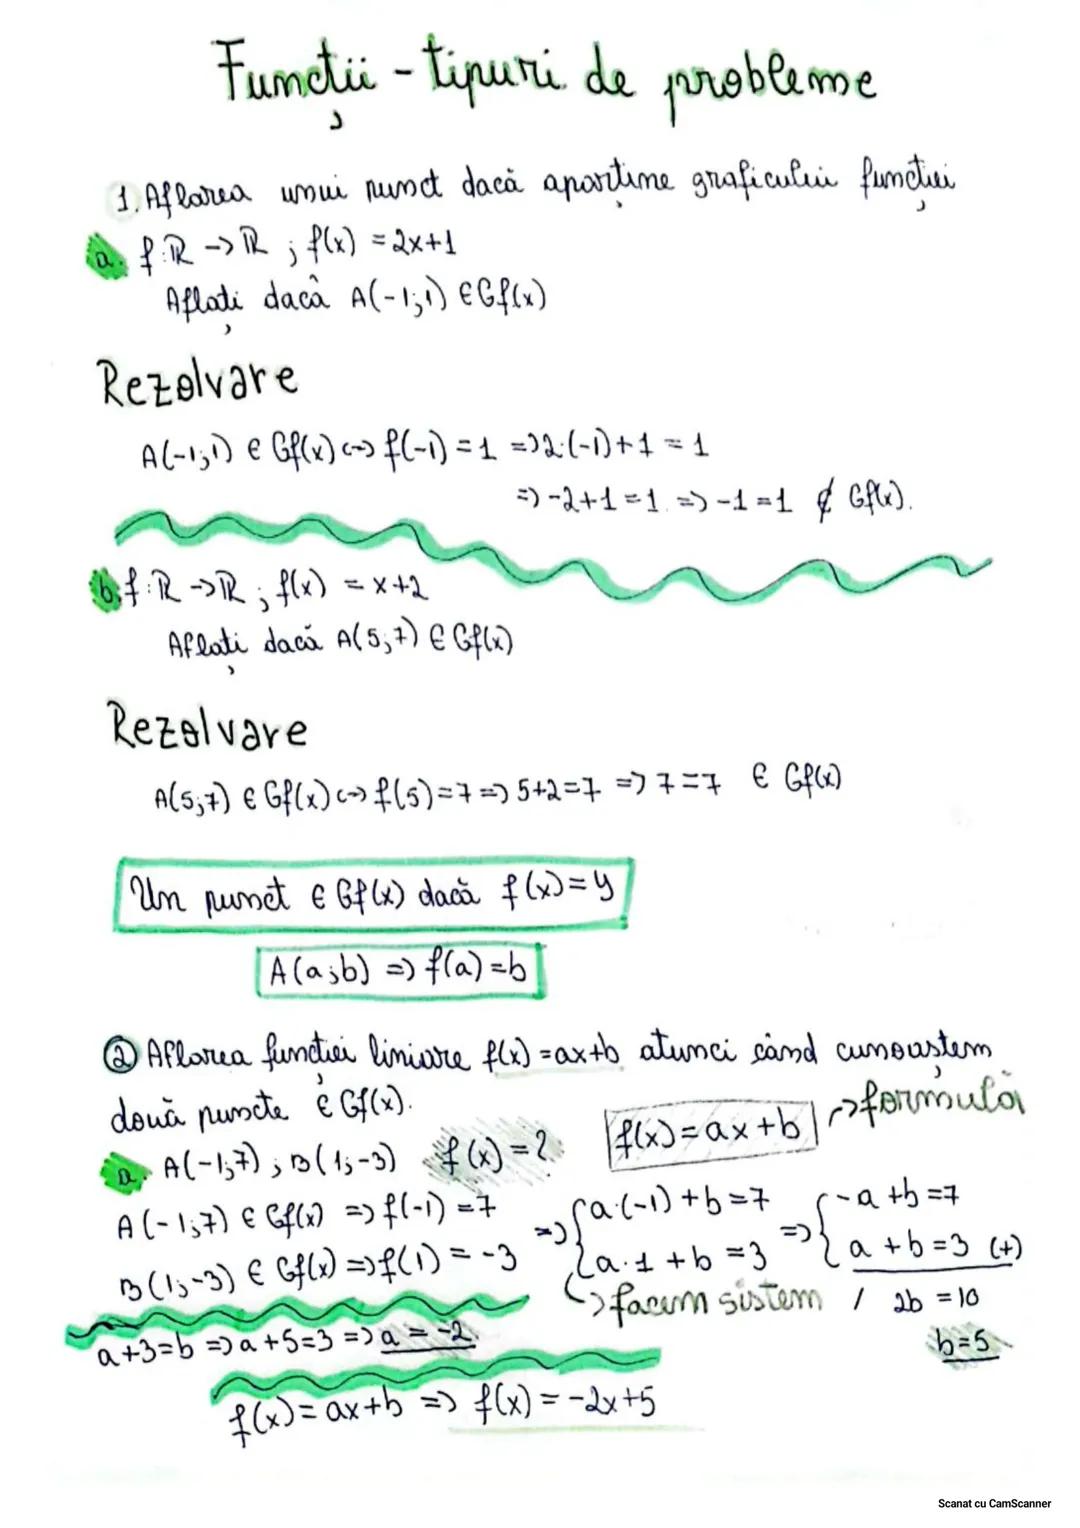 Funcții - tipuri de probleme
1. Aflarea unui punct dacă aparține graficului funcției
a. f:ℝ → ℝ ; f(x) = 2x+1
Aflați dacă A(-1;1) ∈ Gf(x)
Rezolvare
A(-1;1) ∈ Gf(x) <=> f(-1) = 1 => 2·(-1)+1 = 1
=> -2+1 = 1 => -1 = 1 ∉ Gf(x).
b. f:ℝ → ℝ ; f(x) = x+2
Aflați dacă A(5;7) ∈ Gf(x)
Rezolvare
A(5;7) ∈ Gf(x) <=> f(5)=7 => 5+2=7 => 7=7 ∈ Gf(x)
Un punct ∈ Gf(x) dacă f(x)=y
A(a;b) => f(a)=b
② Aflarea funcției liniare f(x)=ax+b atunci când cunoaștem
două puncte ∈ Gf(x).
f(x)=ax+b → formulă
a. A(-1;7) ; B(1;-3) f(x)=?
A(-1;7) ∈ Gf(x) => f(-1) = 7 => { a·(-1)+b=7 => { -a+b=7
B(1;-3) ∈ Gf(x) => f(1) = -3 a·1+b=3 a+b=3 (+)
↳ facem sistem / 2b = 10
a+3=b => a+5=3 => a = -2. b=5
f(x)=ax+b => f(x) = -2x+5
Scanat cu CamScanner